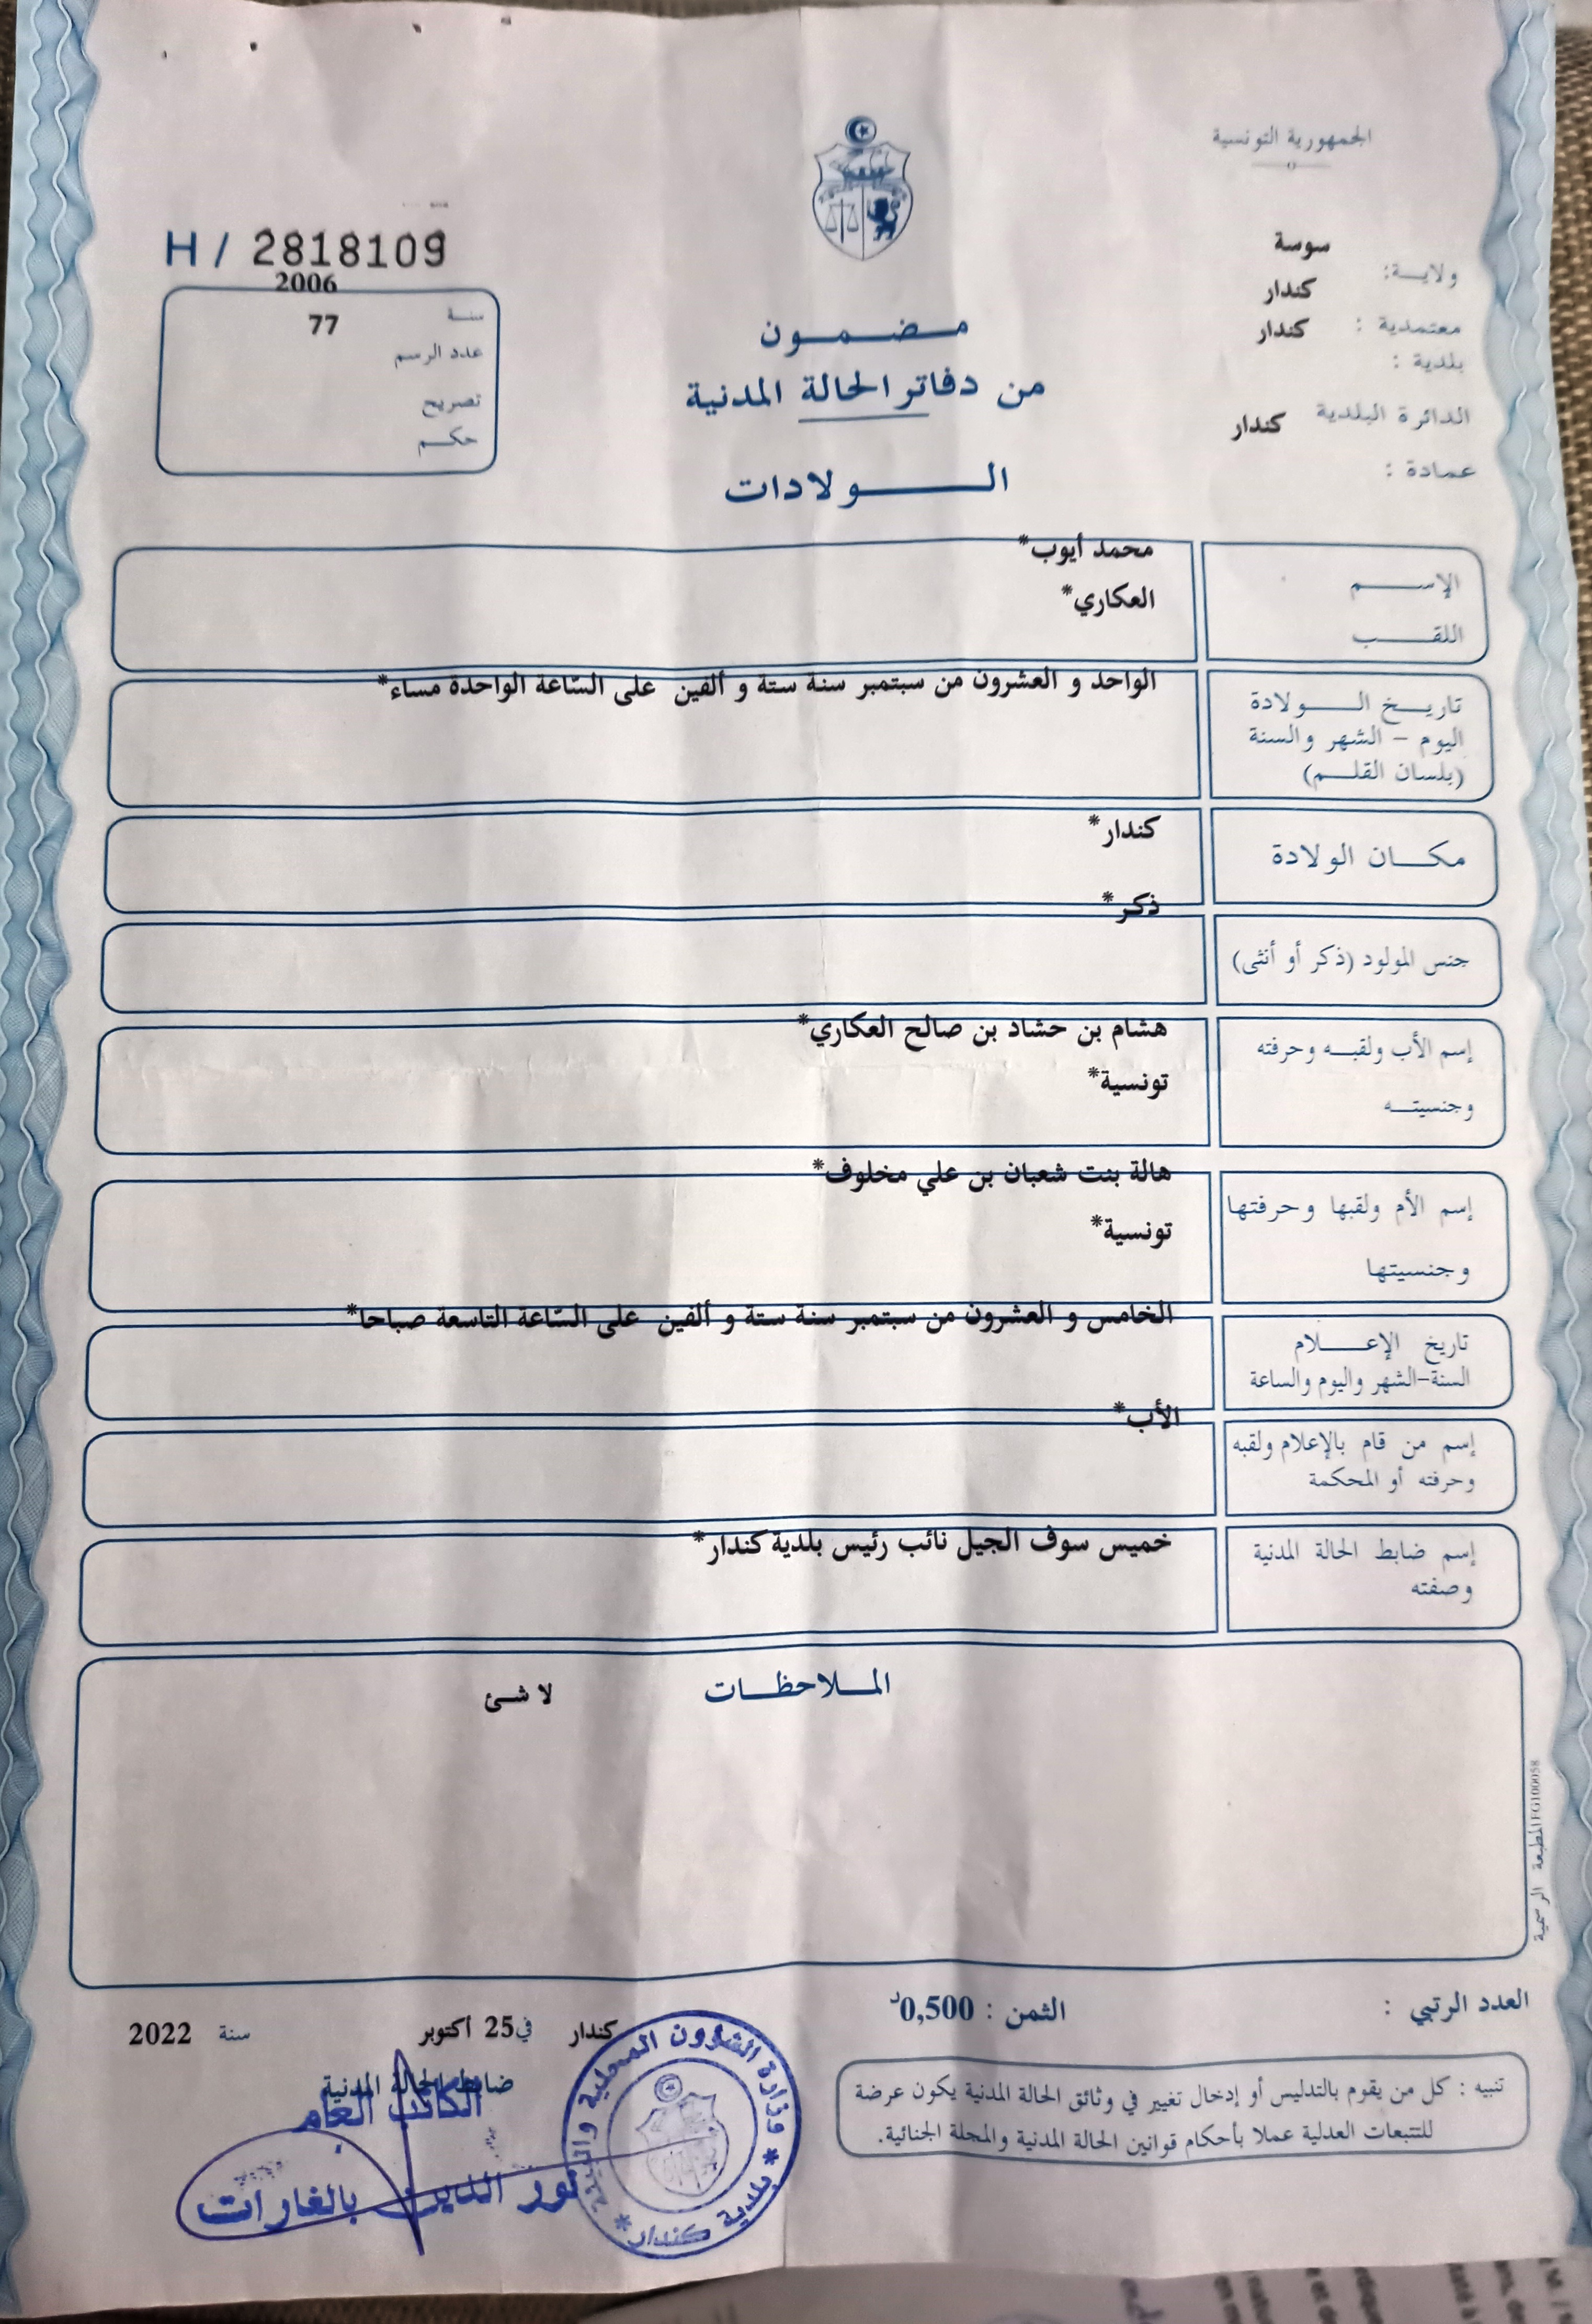 الجمهورية التونسية
ولاية: سوسة
معتمدية : كندار
بلدية : كندار
الدائرة البلدية كندار
عمادة :
H / 2818109
سنة 2006
عدد الرسم 77
تصريح
حكم
مضمون
من دفاتر الحالة المدنية
الولادات
الإسم محمد أيوب*
اللقب العكاري*
تاريخ الولادة الواحد و العشرون من سبتمبر سنة ستة و ألفين على السّاعة الواحدة مساء*
اليوم - الشهر والسنة
(بلسان القلم)
مكان الولادة كندار*
جنس المولود (ذكر أو أنثى) ذكر*
إسم الأب ولقبه وحرفته هشام بن حشاد بن صالح العكاري*
وجنسيته تونسية*
إسم الأم ولقبها وحرفتها هالة بنت شعبان بن علي مخلوف*
وجنسيتها تونسية*
تاريخ الإعلام الخامس و العشرون من سبتمبر سنة ستة و ألفين على السّاعة التاسعة صباحا*
السنة-الشهر واليوم والساعة
إسم من قام بالإعلام ولقبه الأب*
وحرفته أو المحكمة
إسم ضابط الحالة المدنية خميس سوف الجيل نائب رئيس بلدية كندار*
وصفته
الملاحظات لا شئ
المطبعة الرسمية FG100058
العدد الرتبي :
الثمن : 0,500د
كندار في 25 أكتوبر سنة 2022
ضابط الحالة المدنية
الكاتب العام
نور الدين بالغارات
وزارة الشؤون المحلية والبيئة
* بلدية كندار *
تنبيه : كل من يقوم بالتدليس أو إدخال تغيير في وثائق الحالة المدنية يكون عرضة
للتتبعات العدلية عملا بأحكام قوانين الحالة المدنية والمجلة الجنائية.